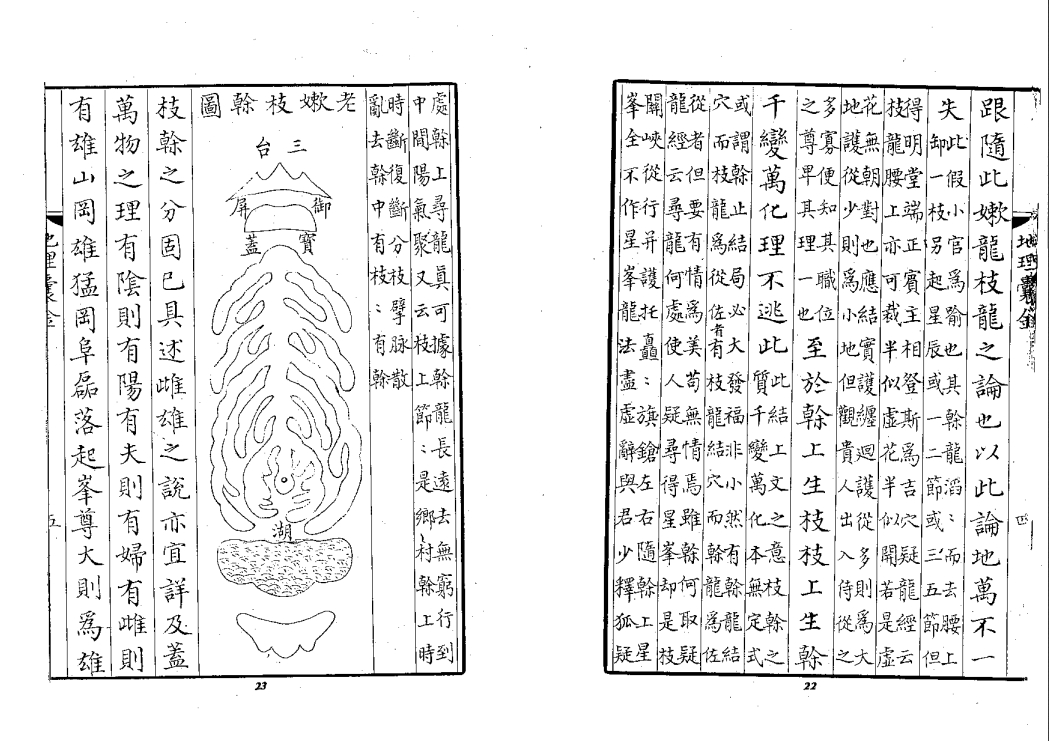 地理囊金
四
跟隨此嫩龍枝龍之論也以此論地萬不一
失此假小官為喻也其幹龍滔〻而去腰上
卸一枝另起星辰或一二節或三五節但
得明堂端正賓主相登斯為吉穴疑龍經云
枝龍腰上亦可裁半似虛花半似開若是虛
花無朝對也應結實護纏迴護從多則為大
地護從少則為小地但觀貴人出入侍從之
多寡便知其職位
之尊卑其理一也至於幹上生枝枝上生幹
千變萬化理不逃此此結上文之意枝幹之
質千變萬化本無定式
或謂幹止結局必大發福非小然有幹龍結
穴而枝龍為從佐者有枝龍結穴而幹龍為佐
從者但要有情為美苟無情焉雖幹何取疑
龍經云尋龍何處使人疑尋得星峯却是枝
關峽從行并護托矗〻旗鎗左右隨幹上星
峯全不作星峯龍法盡虛辭與君少釋狐疑
22
處幹上尋龍真可據幹龍長遠去無窮行到
中間陽氣聚又云枝上節〻是鄉村幹上時
時斷復斷分枝擘脉散
亂去幹中有枝〻有幹
老嫩枝幹圖
三台
御屏
寶蓋
湖
枝幹之分固已具述雌雄之說亦宜詳及蓋
萬物之理有陰則有陽有夫則有婦有雌則
有雄山岡雄猛岡阜磊落起峯尊大則為雄
地理囊金
五
23